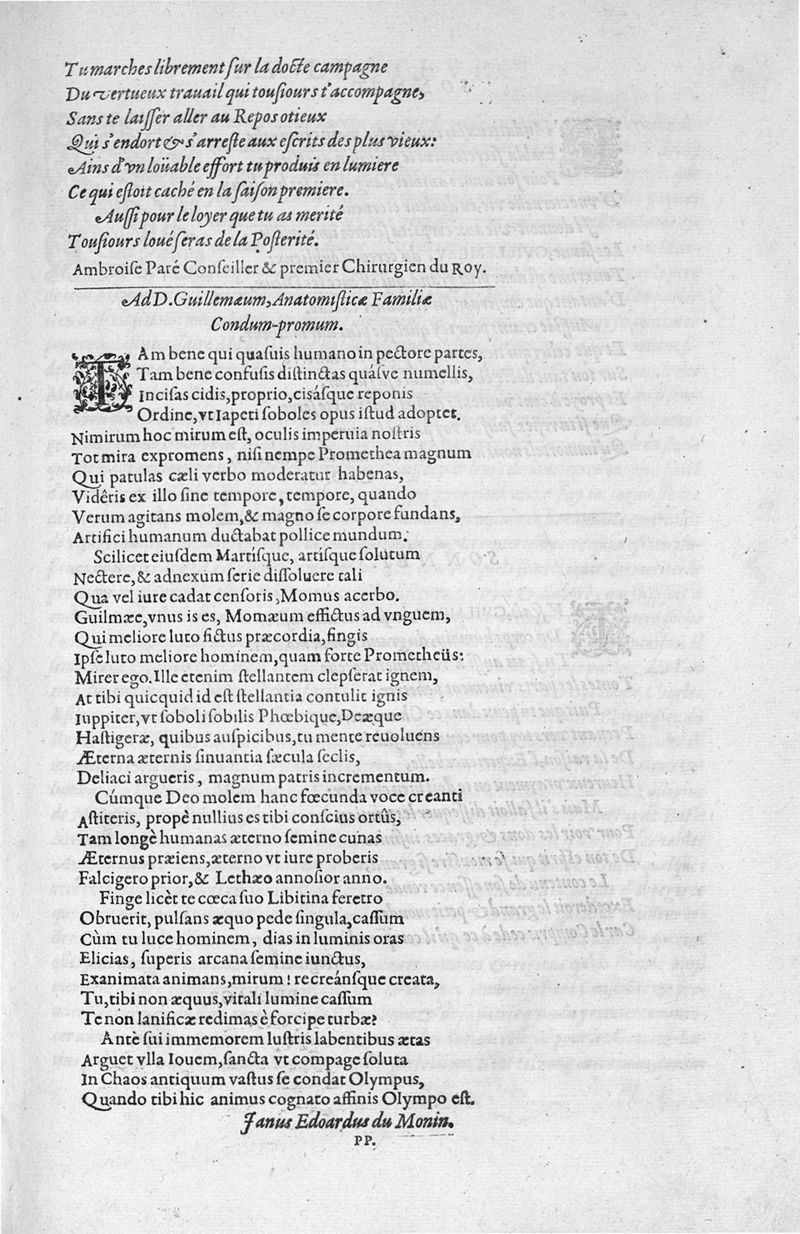 Tu marches librement ſur la docte campagne
Du vertueux trauail qui touſiours t'accompagne,
Sans te laiſſer aller au Repos otieux
Qui s'endort & s'arreſte aux eſcrits des plus vieux:
Ains d'vn loüable effort tu produis en lumiere
Ce qui eſtoit caché en la ſaiſon premiere.
Auſſi pour le loyer que tu as merité
Touſiours loué ſeras de la Poſterité.
Ambroiſe Paré Conſeiller & premier Chirurgien du Roy.
Ad D. Guillemæum, Anatomiſticæ Familiæ
Condum-promum.
TAm bene qui quaſuis humano in pectore partes,
Tam bene confuſis diſtinctas quáſve numellis,
Inciſas cidis, proprio, ciſáſque reponis
Ordine, vt Iapeti ſoboles opus iſtud adoptet.
Nimirum hoc mirum eſt, oculis imperuia noſtris
Tot mira expromens, niſi nempe Promethea magnum
Qui patulas cæli verbo moderatur habenas,
Vidêris ex illo ſine tempore, tempore, quando
Verum agitans molem, & magno ſe corpore fundans,
Artifici humanum ductabat pollice mundum.
Scilicet eiuſdem Martiſque, artiſque ſolutum
Nectere, & adnexum ſerie diſſoluere tali
Qua vel iure cadat cenſoris, Momus acerbo.
Guilmæe, vnus is es, Momæum effictus ad vnguem,
Qui meliore luto fictus præcordia, fingis
Ipſe luto meliore hominem, quam forte Prometheüs:
Mirer ego. Ille etenim ſtellantem clepſerat ignem,
At tibi quicquid id eſt ſtellantia contulit ignis
Iuppiter, vt ſoboli ſobilis Phœbique, Deæque
Haſtigeræ, quibus auſpicibus, tu mente reuoluens
Æterna æternis ſinuantia ſæcula ſeclis,
Deliaci argueris, magnum patris incrementum.
Cúmque Deo molem hanc fœcunda voce creanti
Aſtiteris, propè nullius es tibi conſcius ortûs,
Tam longè humanas æterno ſemine cunas
Æternus præiens, æterno vt iure proberis
Falcigero prior, & Lethæo annoſior anno.
Finge licèt te cœca ſuo Libitina feretro
Obruerit, pulſans æquo pede ſingula, caſſum
Cùm tu luce hominem, dias in luminis oras
Elicias, ſuperis arcana ſemine iunctus,
Exanimata animans, mirum! recreánſque creata,
Tu, tibi non æquus, vitali lumine caſſum
Te non lanificæ redimas è forcipe turbæ?
Antè ſui immemorem luſtris labentibus ætas
Arguet vlla Iouem, ſancta vt compage ſoluta
In Chaos antiquum vaſtus ſe condat Olympus,
Quando tibi hic animus cognato affinis Olympo eſt.
Janus Edoardus du Monin.
PP.